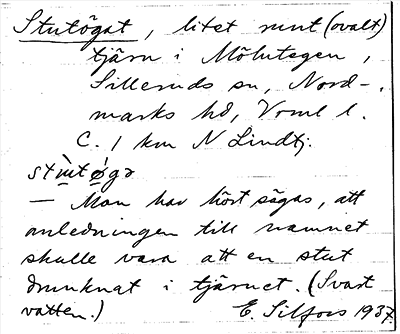 Stutögat, litet runt (ovalt)
tjärn i Mölntegen,
Silleruds sn, Nord-
marks hd, Vrml l.
C. 1 km N Lindtj.
stùtǿgə
— Man har hört sägas, att
anledningen till namnet
skulle vara att en stut
drunknat i tjärnet. (Svart
vatten.) E. Silfors 1937.